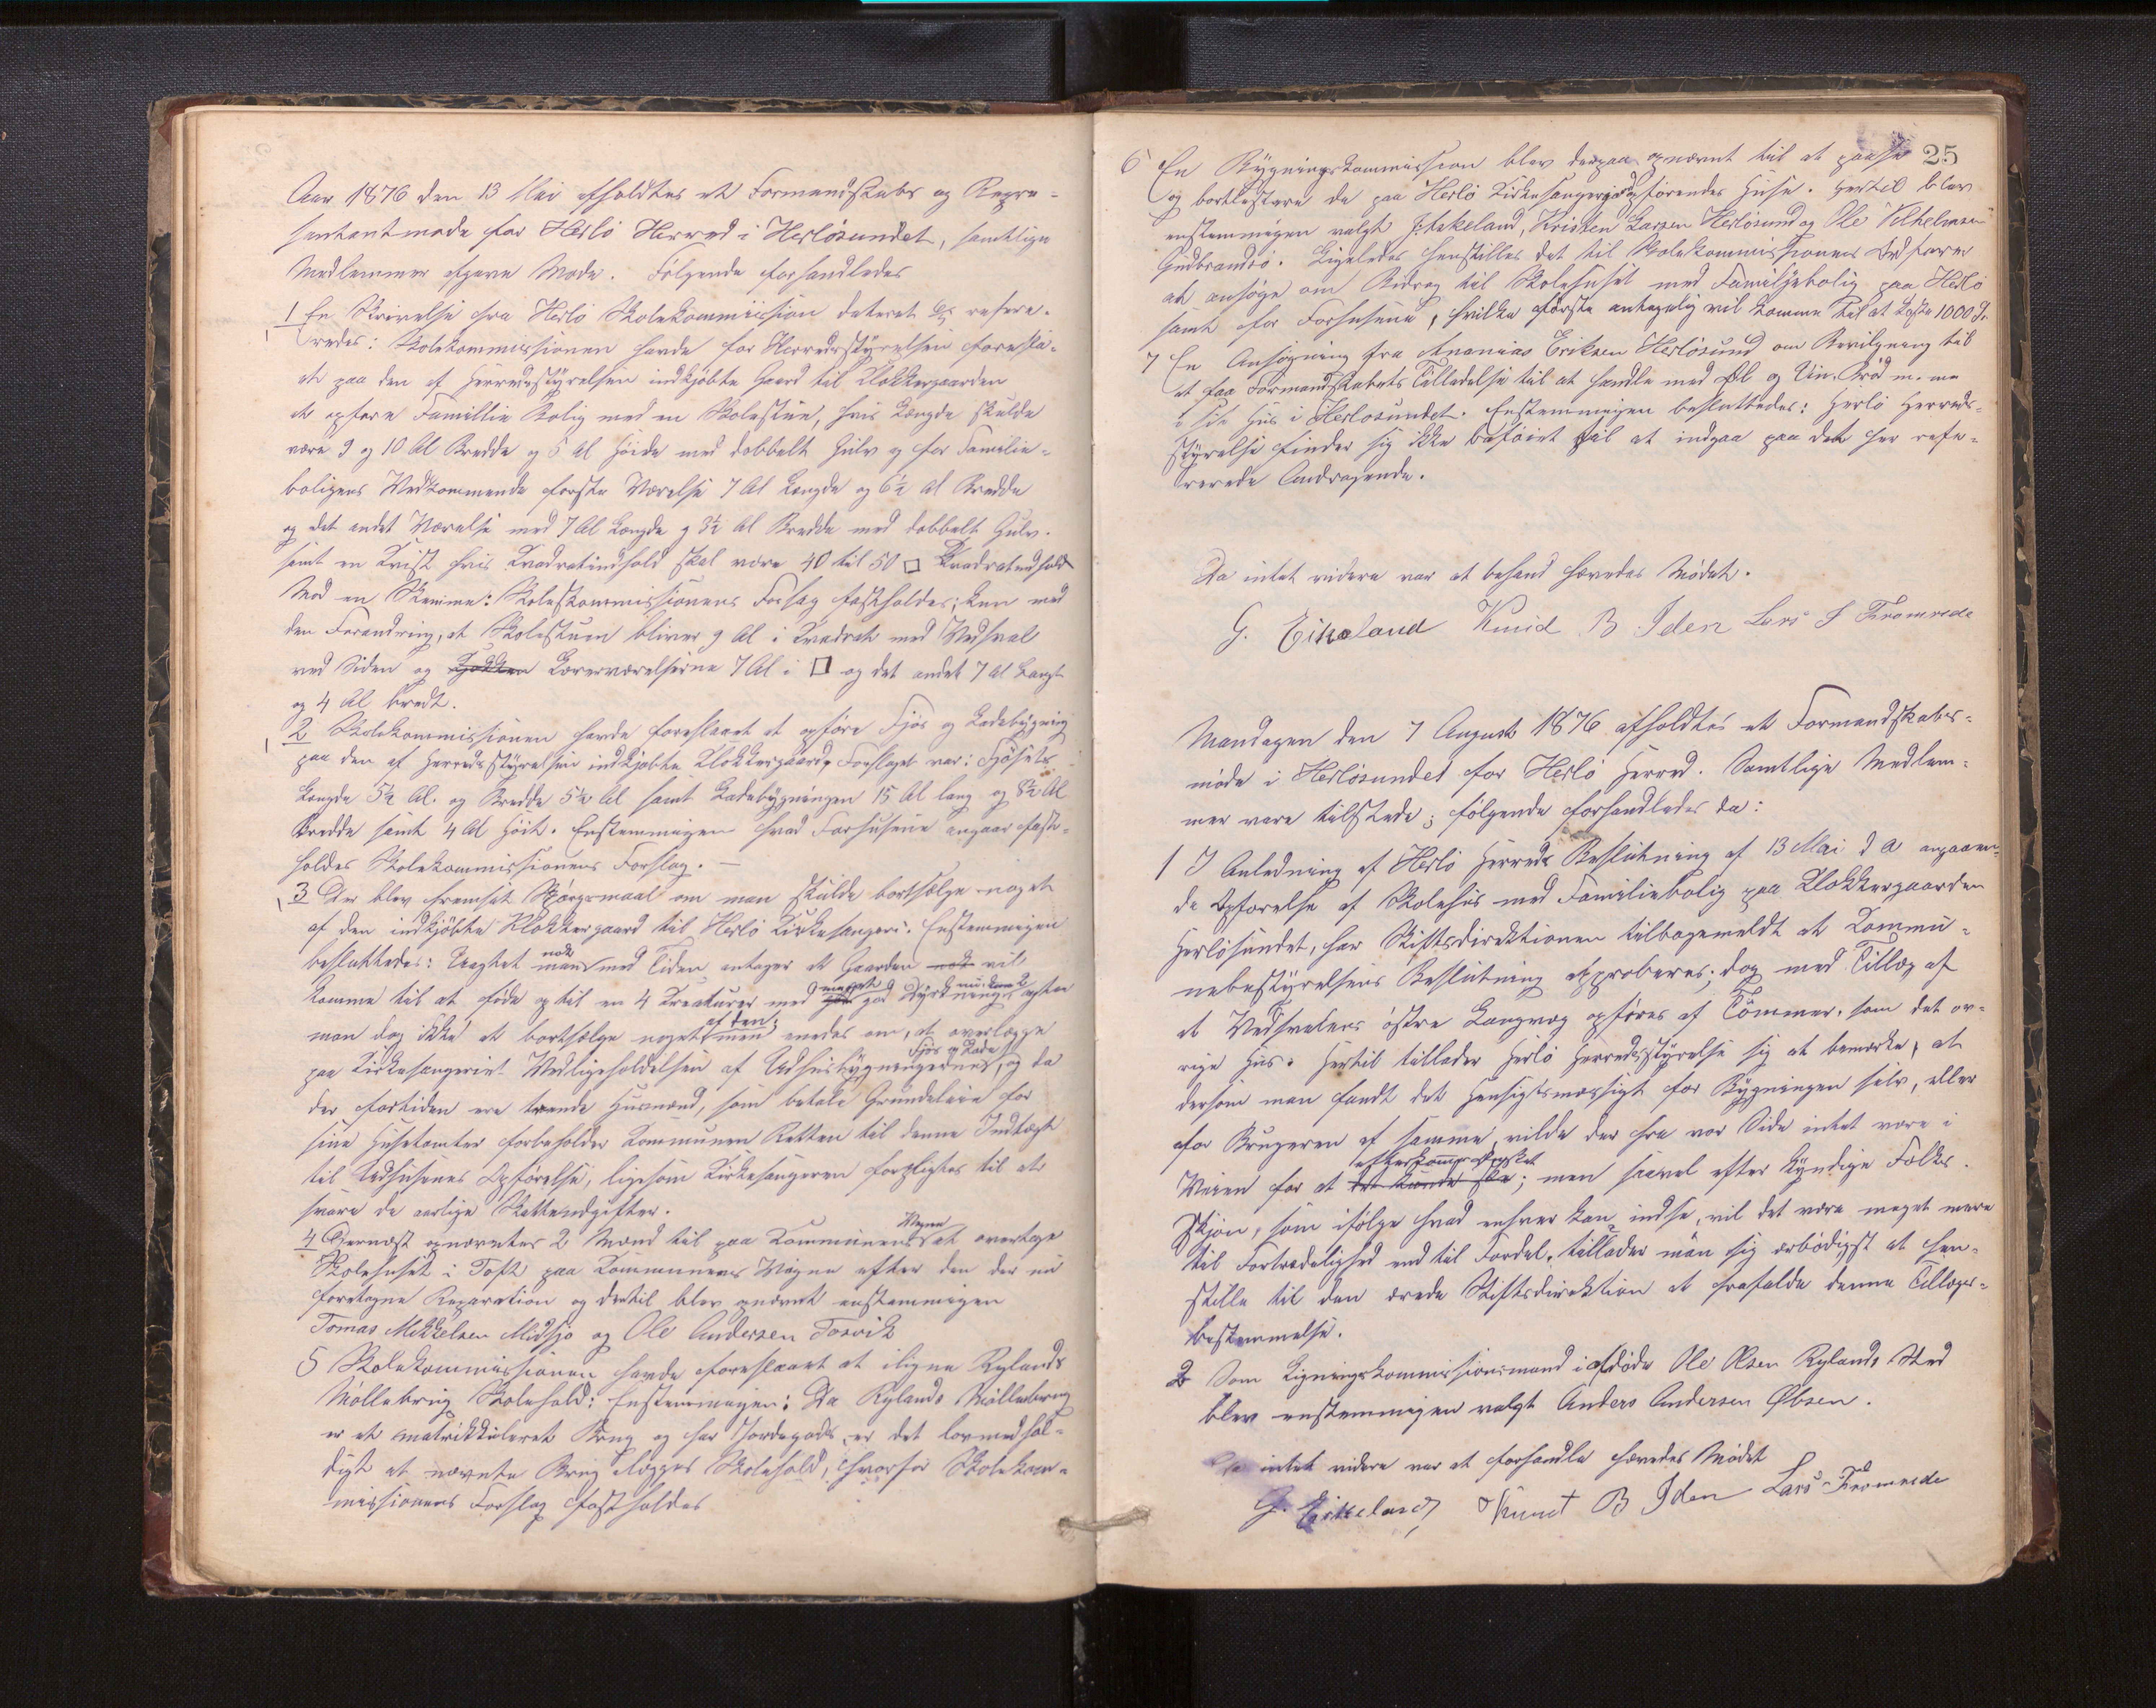 Aar 1876 den 13 Mai afholdtes et Formandskabs og Repræ-
sentantmøde for Herlø Herred i Herløsundet, samtlige
Medlemmer afgave Møde. Følgende forhandledes
1 En Skrivelse fra Herlø Skolekommission dateret refere-
redes: Skolekommissionen havde for Herredsstyrelsen foreslaa-
et paa den af Herredsstyrelsen indkjøbte Gaard til Klokkergaarden
at opføre Familie Bolig med en Skolestue, hvis Længde skulde
være 9 og 10 Al Bredde og 5 Al Høide med dobbelt Gulv og for Familie-
boligens Vedkommende første Værelse 7 Al Længde og 6½ Al Bredde
og det andet Værelse med 7 Al Længde og 3½ Al Bredde med dobbelt Gulv.
samt en Kvist hvis Kvadratindhold skal være 40 til 50 □ Kvadratindhold
Mod en Stemme: Skolekommissionens Forslag fastholdes; kun med
den Forandring, at Skolestuen bliver 9 Al i Kvadrat med Vedsval
ved Siden og Kjøkken Lærerværelserne 7 Al i □ og det andet 7 Al Langt
og 4 Al bredt.
2 Skolekommissionen havde foreslaaet at opføre Fjøs og Ladebygning
paa den af Herredsstyrelsen indkjøbte Klokkergaard, Forslaget var: Fjøsets
Længde 5½ Al. og Bredde 5½ Al samt Ladebygningen 15 Al lang og 8½ Al
Bredde samt 4 Al Høit. Enstemmigen hvad Forhusene angaar fast-
holdes Skolekommissionens Forslag. —
3 Der blev fremsat Spørgsmaal om man skulde bortsælge noget
af den indkjøbte Klokkergaard til Herlø Kirkesangeri. Enstemmigen
besluttedes: Uagtet man nok med Tiden antager at Gaarden nok vil
komme til at føde optil en 4 Kreaturer med meget god
man dog ikke at bortsælge noget af den; men enedes om, at overlægge
paa Kirkesangeriet Vedligeholdelsen af Udhusbygningerne, Fjøs og Lade og da
der fortiden ere tvende Husmænd, som betale Grundeleie for
sine Hustomter forbeholder Kommunen Retten til denne Indtægt
til Udhusenes Opførelse, ligesom Kirkesangeren forpligtes til at
svare de aarlige Skatteudgifter.
4 Dernæst opnævntes 2 Mænd til paa Kommunens Vegne at overtage
Skolehuset i Toft paa Kommunens Vegne efter den der nu
foretagne Reparation og dertil blev opnævnt enstemmigen
Tomas Mikkelsen Midsjø og Ole Andersen Tosvik
5 Skolekommissionen havde foreslaaet at iligne Rylands
Møllebrug Skolehold: Enstemmigen: Da Rylands Møllebrug
er et matrikkuleret Brug og har Jordegods, er det lovmedhol-
digt at nævnte Brug ilægges Skolehold, hvorfor Skolekom-
missionens Forslag fastholdes
25
6 En Bygningskommission blev derpaa opnævnt til at paase
og bortlisitere de paa Herlø Kirkesangergaard opførendes Huse. Hertil blev
enstemmigen valgt Eikeland, Kristen Larsen Herløsund og Ole Vilhelmsen
Gudbrandsø. Ligeledes henstilles det til Skolekommissionens Ordfører
at ansøge om Bidrag til Skolehuset med Familjebolig paa Herlø
samt for Forhusene, hvilke første antagelig vil komme til at koste 1000 Sp
7 En Ansøgning fra Ananias Eriksen Herløsund om Bevilgning til
at faa Formandskabets Tilladelse til at handle med Øl og Vin. Brød m. m
i sit Hus i Herløsundet. Enstemmigen besluttedes: Herlø Herreds-
styrelse finder sig ikke beføiet til at indgaa paa det her refe-
rerede Andragende.
Da intet videre var at behand hævedes Mødet.
G. Eikeland Knud B Iden Lars J Fromrede
Mandagen den 7 August 1876 afholdtes et Formandskabs-
møde i Herløsundet for Herlø Herred. Samtlige Medlem-
mer vare tilstede; følgende forhandledes da:
1 I Anledning af Herlø Herreds Beslutning af 13 Mai d a angaaen-
de Opførelse af Skolehus med Familiebolig paa Klokkergaarden
Herløsundet, har Stiftsdirektionen tilbagemeldt at Kommu-
nebestyrelsens Beslutning approberes; dog med Tillæg af
at Vedsvalens østre Langvæg opføres af Tømmer, som det øv-
rige Hus. Hertil tillader Herlø Herredsstyrelse sig at bemærke, at
dersom man fandt det hensigtsmæssigt for Bygningen selv, eller
for Brugeren af samme, vilde der fra vor Side intet være i
Veien for at det kunde ske; men saavel efter kyndige Folks
Skjøn, som ifølge hvad enhver kan indse, vil det være meget mere
til Fortrædelighed end til Fordel, tillader man sig ærbødigst at hen-
stille til den ærede Stiftsdirektion at frafalde denne Tillægs-
bestemmelse.
2 Som Ligningskommissionsmand i afdøde Ole Olsen Rylands Sted
blev enstemmigen valgt Anders Andersen Øbsen.
Da intet videre var at forhandle hævedes Mødet
G. Eikeland Knud B Iden Lars Fromrede